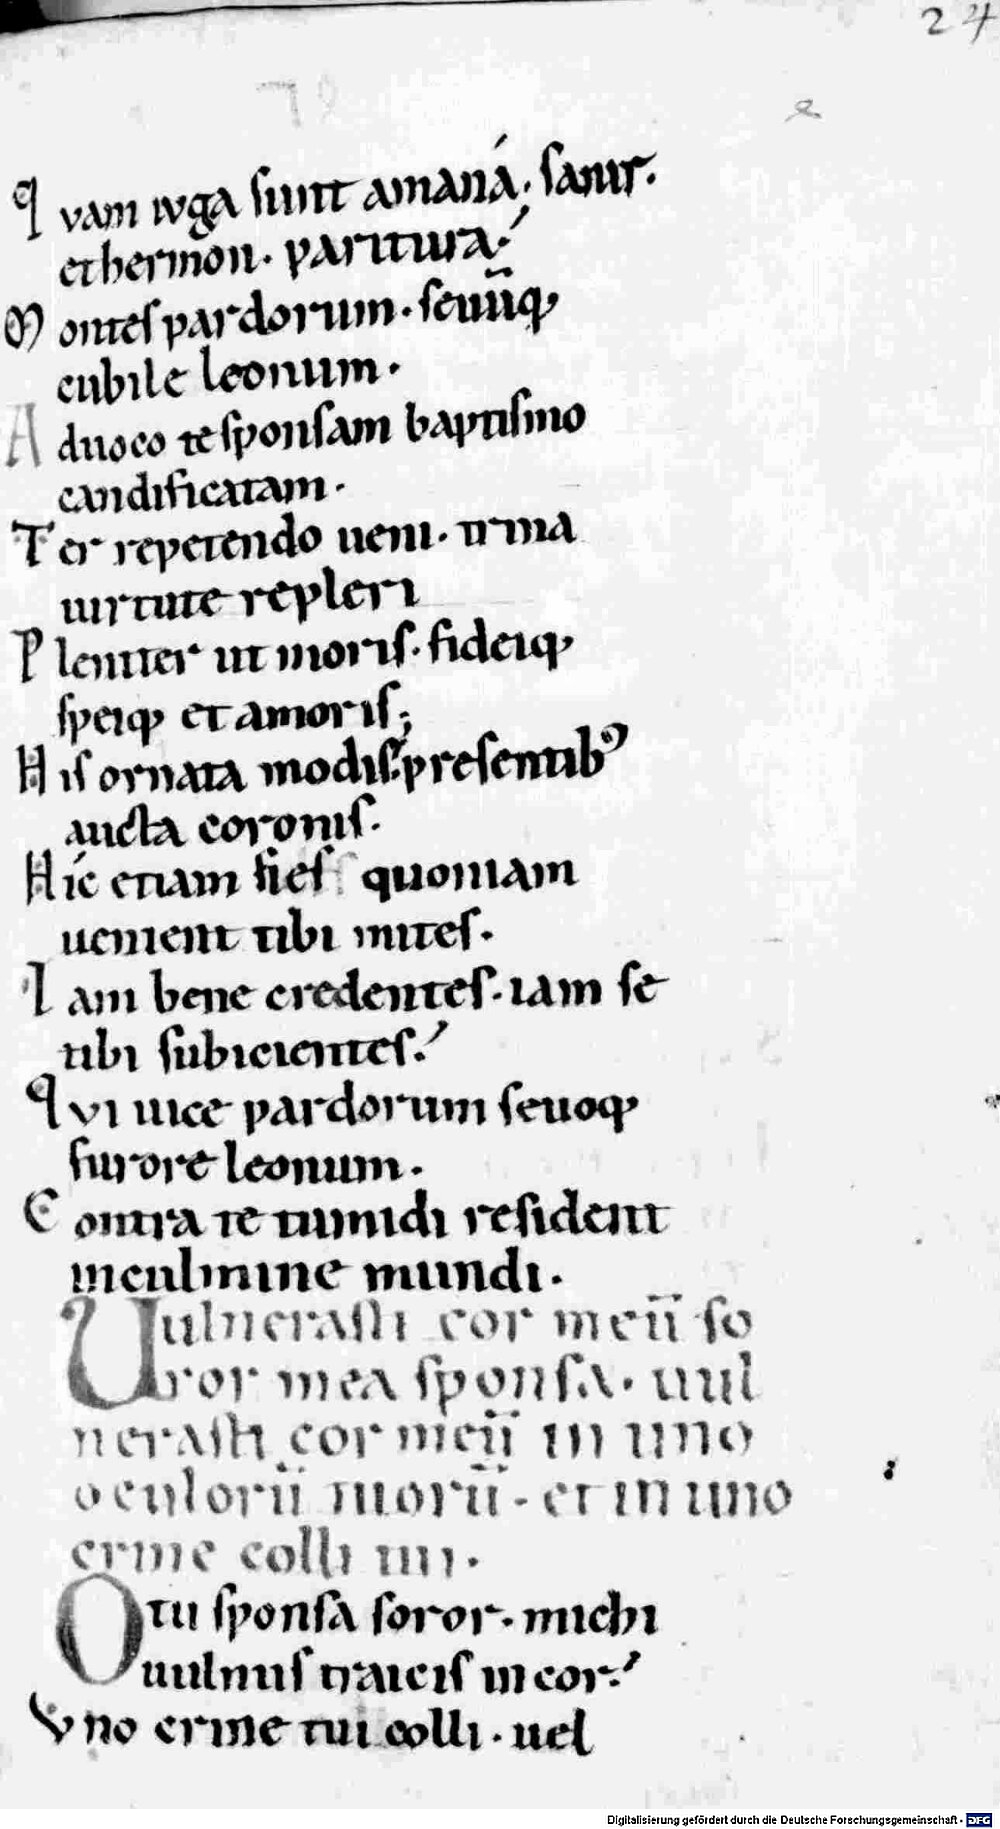 24
Qvam iuga sunt amaná, sanir.
et hermon. paritura.
Montes pardorum. seuūq;
cubile leonum.
Aduoco te sponsam baptismo
candificatam.
Ter repetendo ueni. trina
uirtute repleri
Pleniter ut moris. fideiq;
speiq; et amoris;
His ornata modis. presentib⁹
aucta coronis.
Híc etiam fies quoniam
uenient tibi mites.
Iam bene credentes. iam se
tibi subicientes.
Qvi uice pardorum seuoq;
furore leonum.
Contra te tumidi resident
in culmine mundi.
Uulnerasti cor meū so
ror mea sponsa. uul
nerasti cor meū in uno
oculorū tuorū. et in uno
crine colli tui.
O tu sponsa soror. michi
uulnus traicis in cor.
Vno crine tui colli. uel
Digitalisierung gefördert durch die Deutsche Forschungsgemeinschaft - DFG